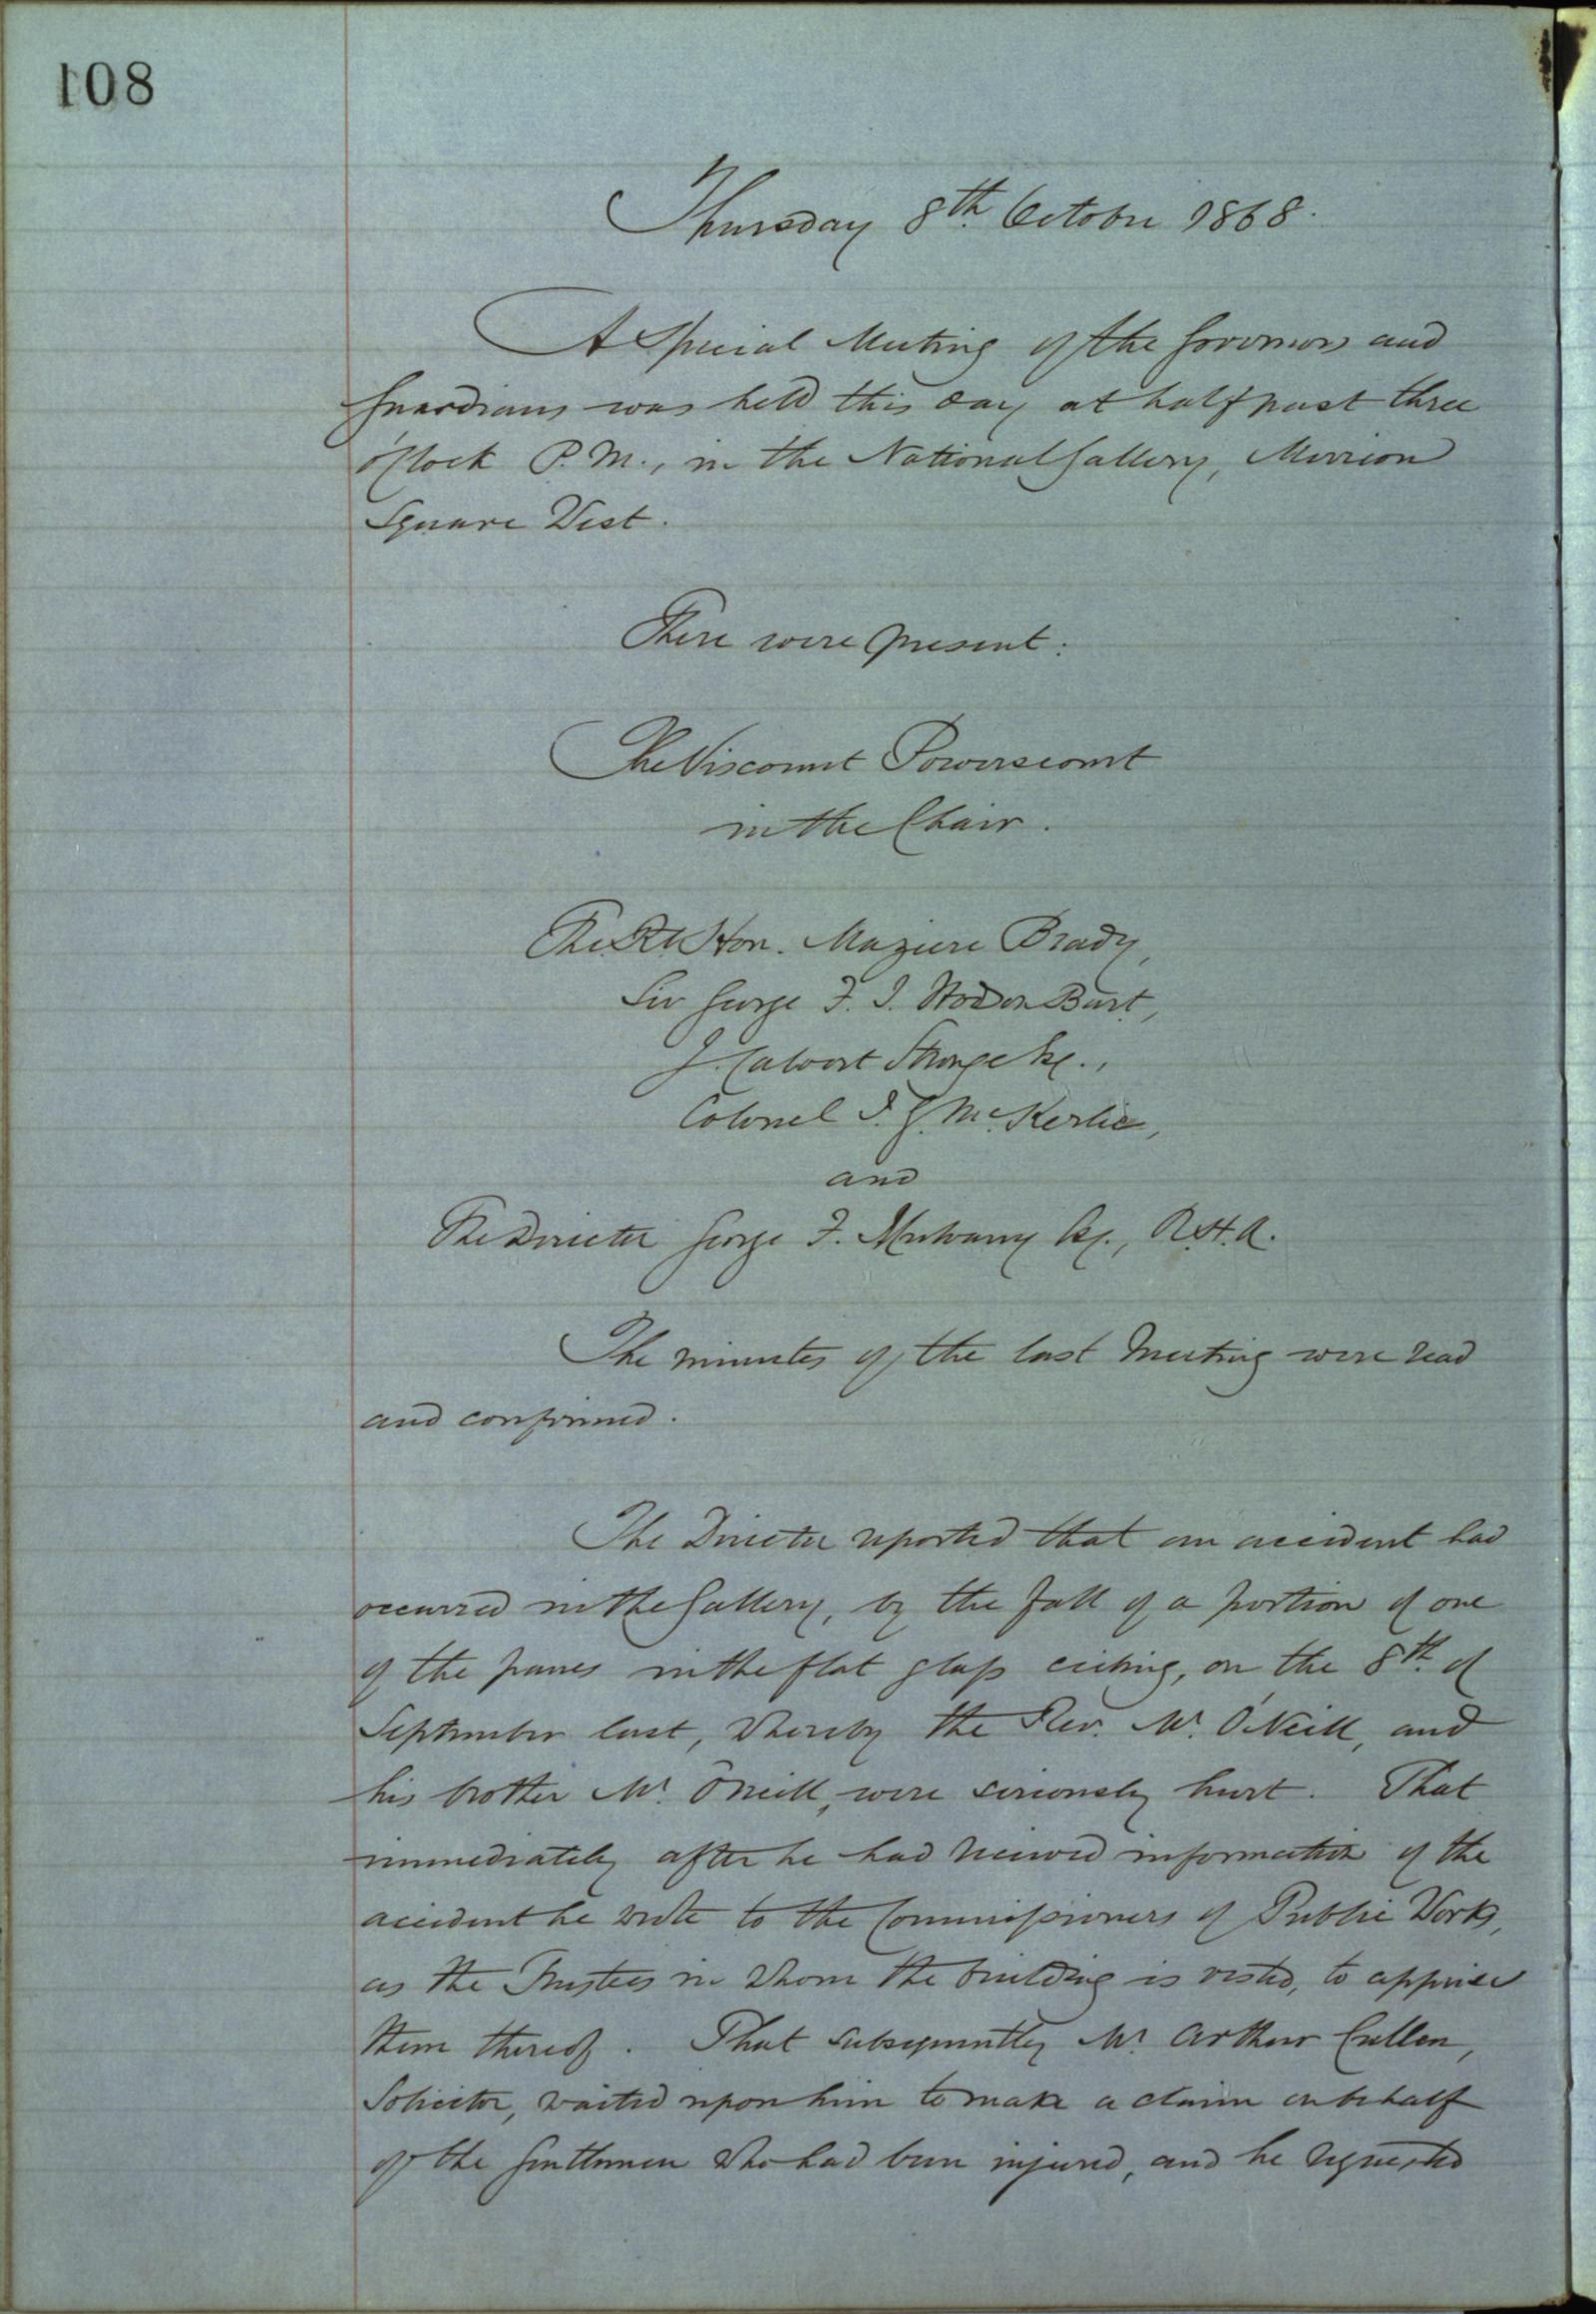 108
Thursday 8th. October 1868.
A Special Meeting of the Governors and
Guardians was held this day at half past three
o'Clock P.M., in the National Gallery, Merrion
Square West.
There were present:
The Viscount Powerscourt
in the Chair.
The Rt. Hon. Maziere Brady,
Sir George F. J. Hodson Bart,
J. Calvert Stronge Esq.,
Colonel J. G. McKerlie,
and
The Director George F. Mulvany Esq., R.H.A.
The minutes of the last Meeting were read
and confirmed.
The Director reported that an accident had
occurred in the Gallery, by the fall of a portion of one
of the panes in the flat glass ceiling, on the 8th. of
September last, whereby the Rev. Mr. O'Neill, and
his brother Mr. O'Neill, were seriously hurt. That
immediately after he had received information of the
accident he wrote to the Commissioners of Public Works,
as the Trustees in whom the building is vested, to apprise
them thereof. That subsequently Mr. Arthur Cullen,
Solicitor, waited upon him to make a claim on behalf
of the Gentlemen who had been injured, and he requested